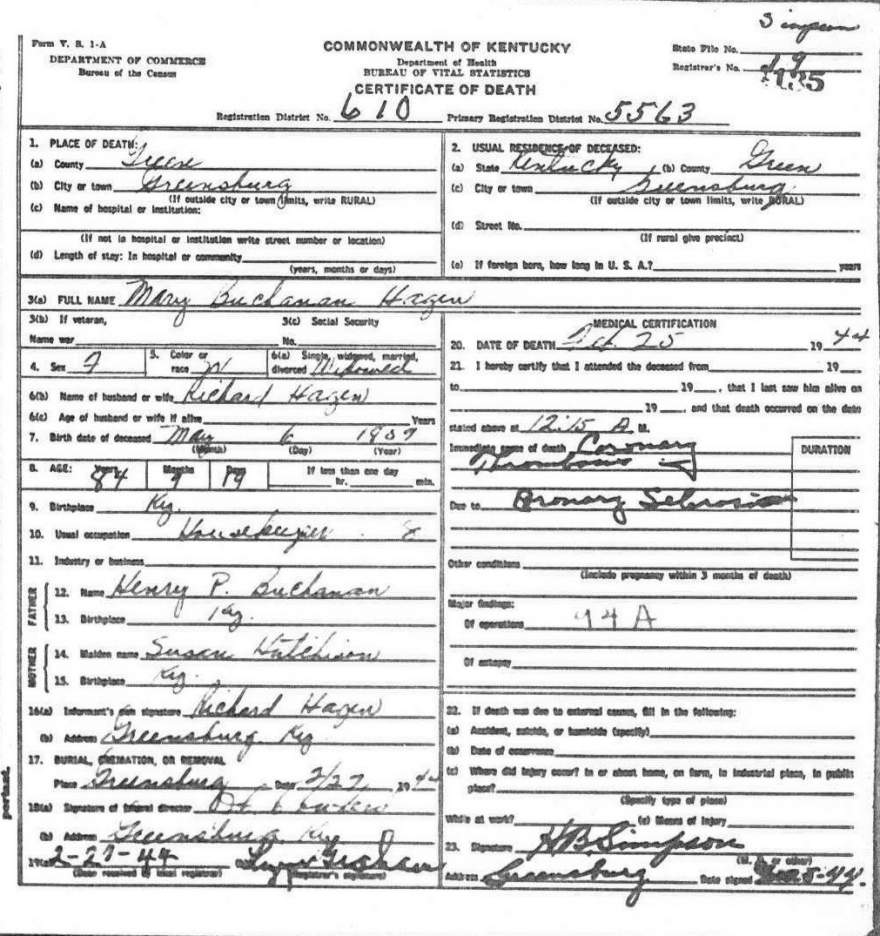 Simpson
Form V. S. 1-A
DEPARTMENT OF COMMERCE
Bureau of the Census
COMMONWEALTH OF KENTUCKY
Department of Health
BUREAU OF VITAL STATISTICS
CERTIFICATE OF DEATH
State File No.
Registrar's No. 19
Registration District No. 610 Primary Registration District No. 5563
1. PLACE OF DEATH:
(a) County Green
(b) City or town Greensburg
(If outside city or town limits, write RURAL)
(c) Name of hospital or institution:
(If not in hospital or institution write street number or location)
(d) Length of stay: In hospital or community
(years, months or days)
2. USUAL RESIDENCE OF DECEASED:
(a) State Kentucky (b) County Green
(c) City or town Greensburg
(If outside city or town limits, write RURAL)
(d) Street No.
(If rural give precinct)
(e) If foreign born, how long in U. S. A.? years
3(a) FULL NAME Mary Buchanan Hagen
3(b) If veteran,
Name war
3(c) Social Security
No.
4. Sex F
5. Color or
race W
6(a) Single, widowed, married,
divorced Widowed
6(b) Name of husband or wife Richard Hagen
6(c) Age of husband or wife if alive Years
7. Birth date of deceased May 6
(Month) (Day) (Year)
8. AGE: Years Months Days If less than one day
84 9 19 hr. min.
9. Birthplace Ky.
10. Usual occupation Housekeeper 8
11. Industry or business
FATHER
12. Name Henry P. Buchanan
13. Birthplace Ky.
MOTHER
14. Maiden name Susan Hutchison
15. Birthplace Ky.
16(a) Informant's own signature Richard Hagen
(b) Address Greensburg Ky
17. BURIAL, CREMATION, OR REMOVAL
Place Greensburg Date 2/27 1944
18(a) Signature of funeral director
(b) Address Greensburg Ky
19(a) 2-27-44
(Date received by local registrar) (Registrar's signature)
MEDICAL CERTIFICATION
20. DATE OF DEATH Feb. 25 1944
21. I hereby certify that I attended the deceased from 19
to 19, that I last saw him alive on
19, and that death occurred on the date
stated above at 12:15 A. M.
Immediate cause of death Coronary
Thrombosis
DURATION
Due to Coronary Sclerosis
Other conditions
(Include pregnancy within 3 months of death)
Major findings:
Of operations 94A
Of autopsy
22. If death was due to external causes, fill in the following:
(a) Accident, suicide, or homicide (specify)
(b) Date of occurrence
(c) Where did injury occur? In or about home, on farm, in industrial place, in public
place?
(Specify type of place)
While at work? (e) Means of injury
23. Signature H B Simpson
(M. D. or other)
Address Greensburg Date signed
portant.